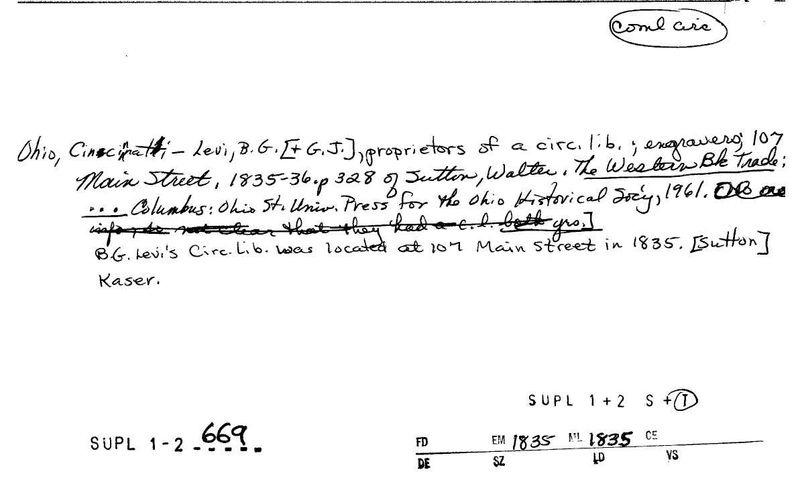 coml circ
Ohio, Cincinnati - Levi, B.G. [+ G.J.], proprietors of a circ. lib.; engravers; 107
Main Street, 1835-36. p 328 of Sutton, Walter. The Western Bk Trade:
... Columbus: Ohio St. Univ. Press for the Ohio Historical Soc'y, 1961.
info, so not clear that they had a c.l. both yrs.]
B.G. Levi's Circ. Lib. was located at 107 Main Street in 1835. [Sutton]
Kaser.
SUPL 1+2 S+T
SUPL 1-2 669
FD EM 1835 ML 1835 CE
DE SZ LD VS